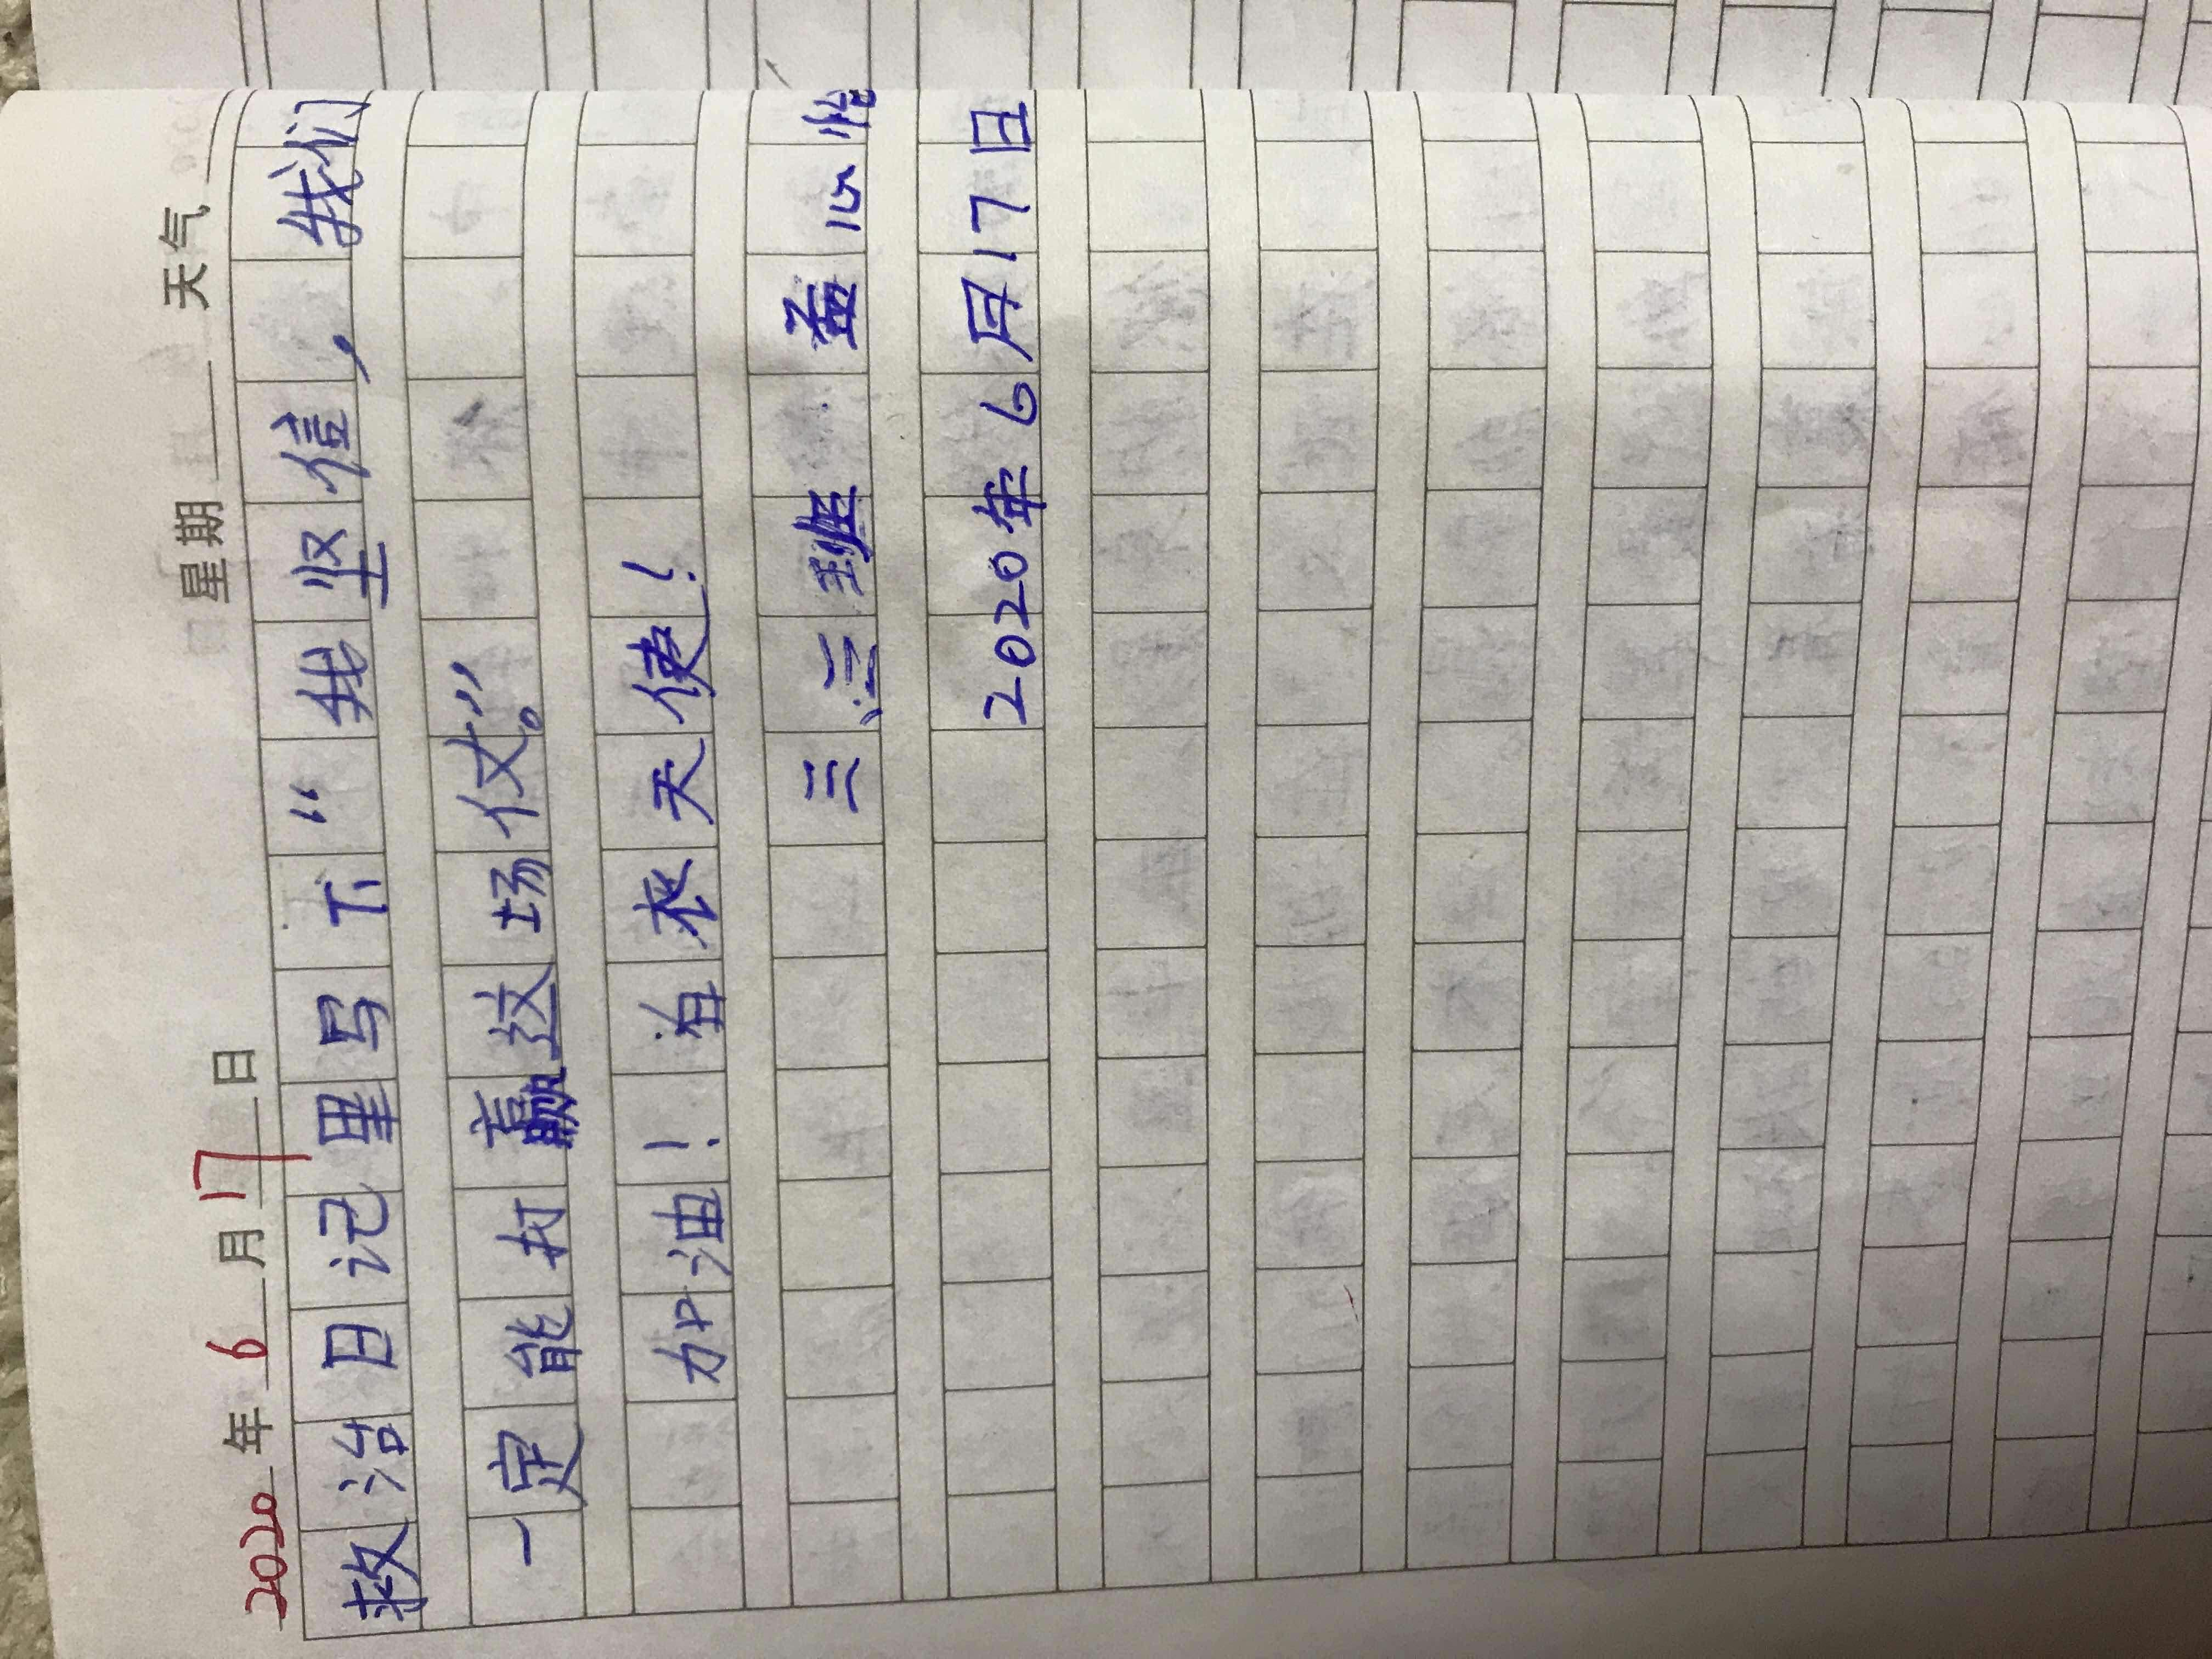 2020年6月17日 星期 天气
救治日记里写下“我坚信,我们
一定能打赢这场仗。”
加油!白衣天使!
三(三)班 孟
2020年6月17日